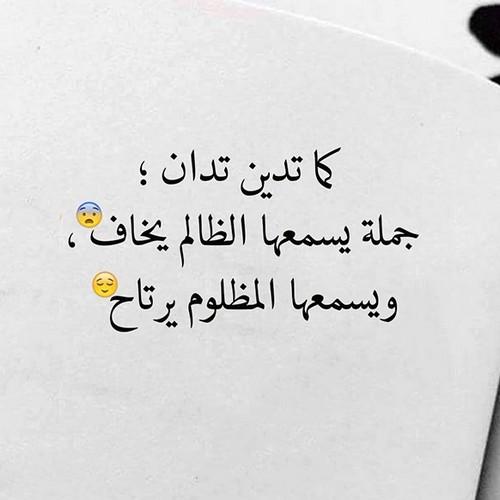 كما تدين تدان ؛
جملة يسمعها الظالم يخاف😨 ،
ويسمعها المظلوم يرتاح😌